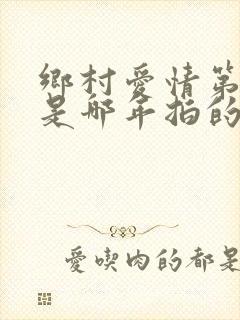 鄉村愛情第
是哪年拍的
愛喫肉的都是